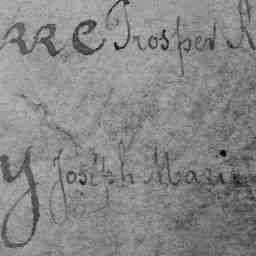 rre Prosper R
y Joséph Marie